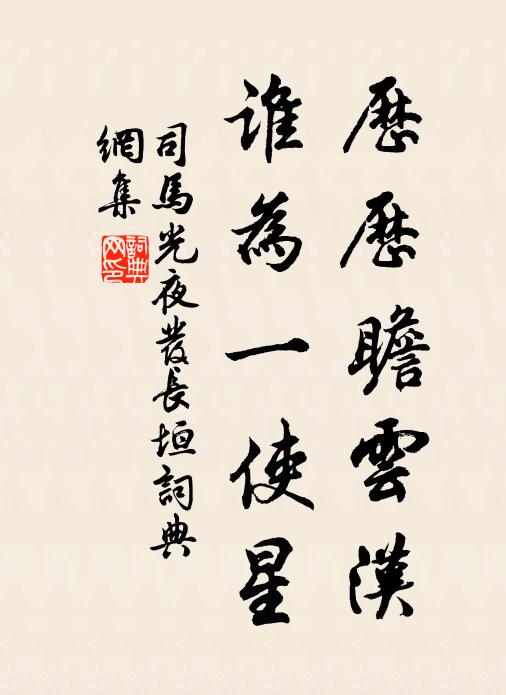 歷歷瞻雲漢
誰為一使星
司馬光夜發長垣詞典
網集
詞典
网印